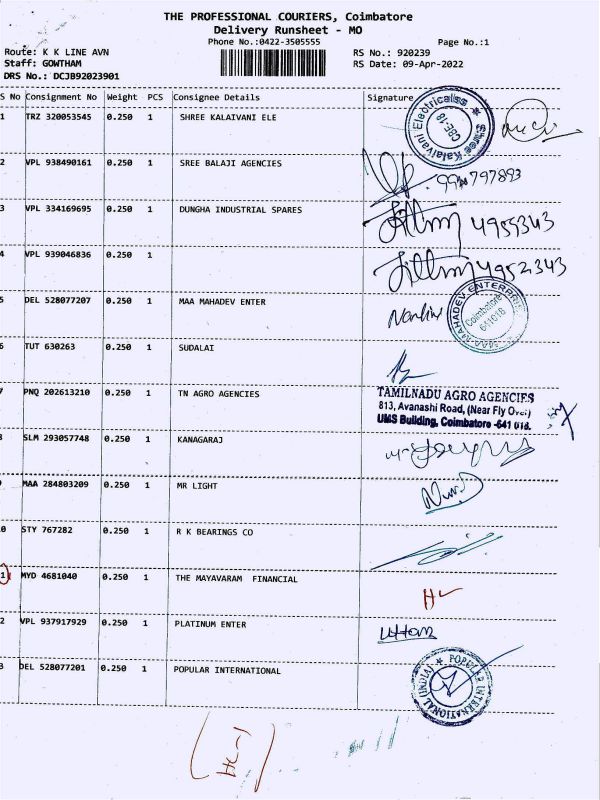 THE PROFESSIONAL COURIERS, Coimbatore
Delivery Runsheet - MO
Phone No.:0422-3505555
Page No.:1
Route: K K LINE AVN
RS No.: 920239
Staff: GOWTHAM
RS Date: 09-Apr-2022
DRS No.: DCJB92023901
S No Consignment No Weight PCS Consignee Details Signature
1 TRZ 320053545 0.250 1 SHREE KALAIVANI ELE
Shree Kalaivani Electricalss CBE-18
2 VPL 938490161 0.250 1 SREE BALAJI AGENCIES
3 VPL 334169695 0.250 1 DUNGHA INDUSTRIAL SPARES
4 VPL 939046836 0.250 1
5 DEL 528077207 0.250 1 MAA MAHADEV ENTER
MAA MAHADEV ENTERPRISE Coimbatore 641018
6 TUT 630263 0.250 1 SUDALAI
7 PNQ 202613210 0.250 1 TN AGRO AGENCIES
TAMILNADU AGRO AGENCIES
813, Avanashi Road, (Near Fly Over)
UMS Building, Coimbatore -641 018.
8 SLM 293057748 0.250 1 KANAGARAJ
MAA 284803209 0.250 1 MR LIGHT
0 STY 767282 0.250 1 R K BEARINGS CO
1 MYD 4681040 0.250 1 THE MAYAVARAM FINANCIAL
2 VPL 937917929 0.250 1 PLATINUM ENTER
uttam
3 DEL 528077201 0.250 1 POPULAR INTERNATIONAL
POPULAR INTERNATIONAL (INDIA)